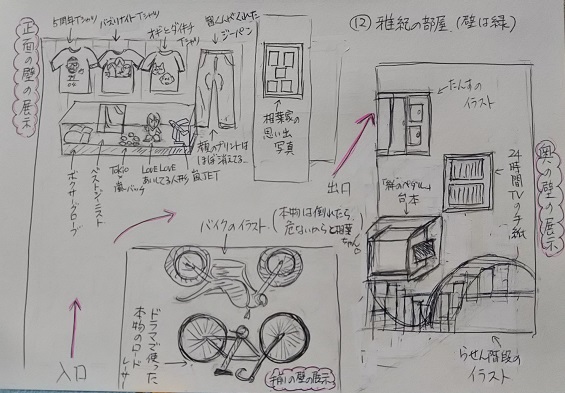 ⑫雅紀の部屋.(壁は緑)
正面の壁の展示
5周年Tシャツ
バースデイTシャツ
オギヒダイチ
Tシャツ
皆くんがくれた
ジーパン
相葉家の
思い出
写真
顔のプリントは
ほぼ消えてる…
ボクサーグローブ
ベストジーニスト
TOKIO
嵐バック
LOVE LOVE
あいしてる人形
嵐JET
たんすの
イラスト
奥の壁の展示
24時間TVの手紙
台本
出口
らせん階段の
イラスト
バイクのイラスト.
(本物は倒れたら
危ないからと相葉
ちゃん。
ドラマで使った
本物のロード
レーサー
手前の壁の展示
入口